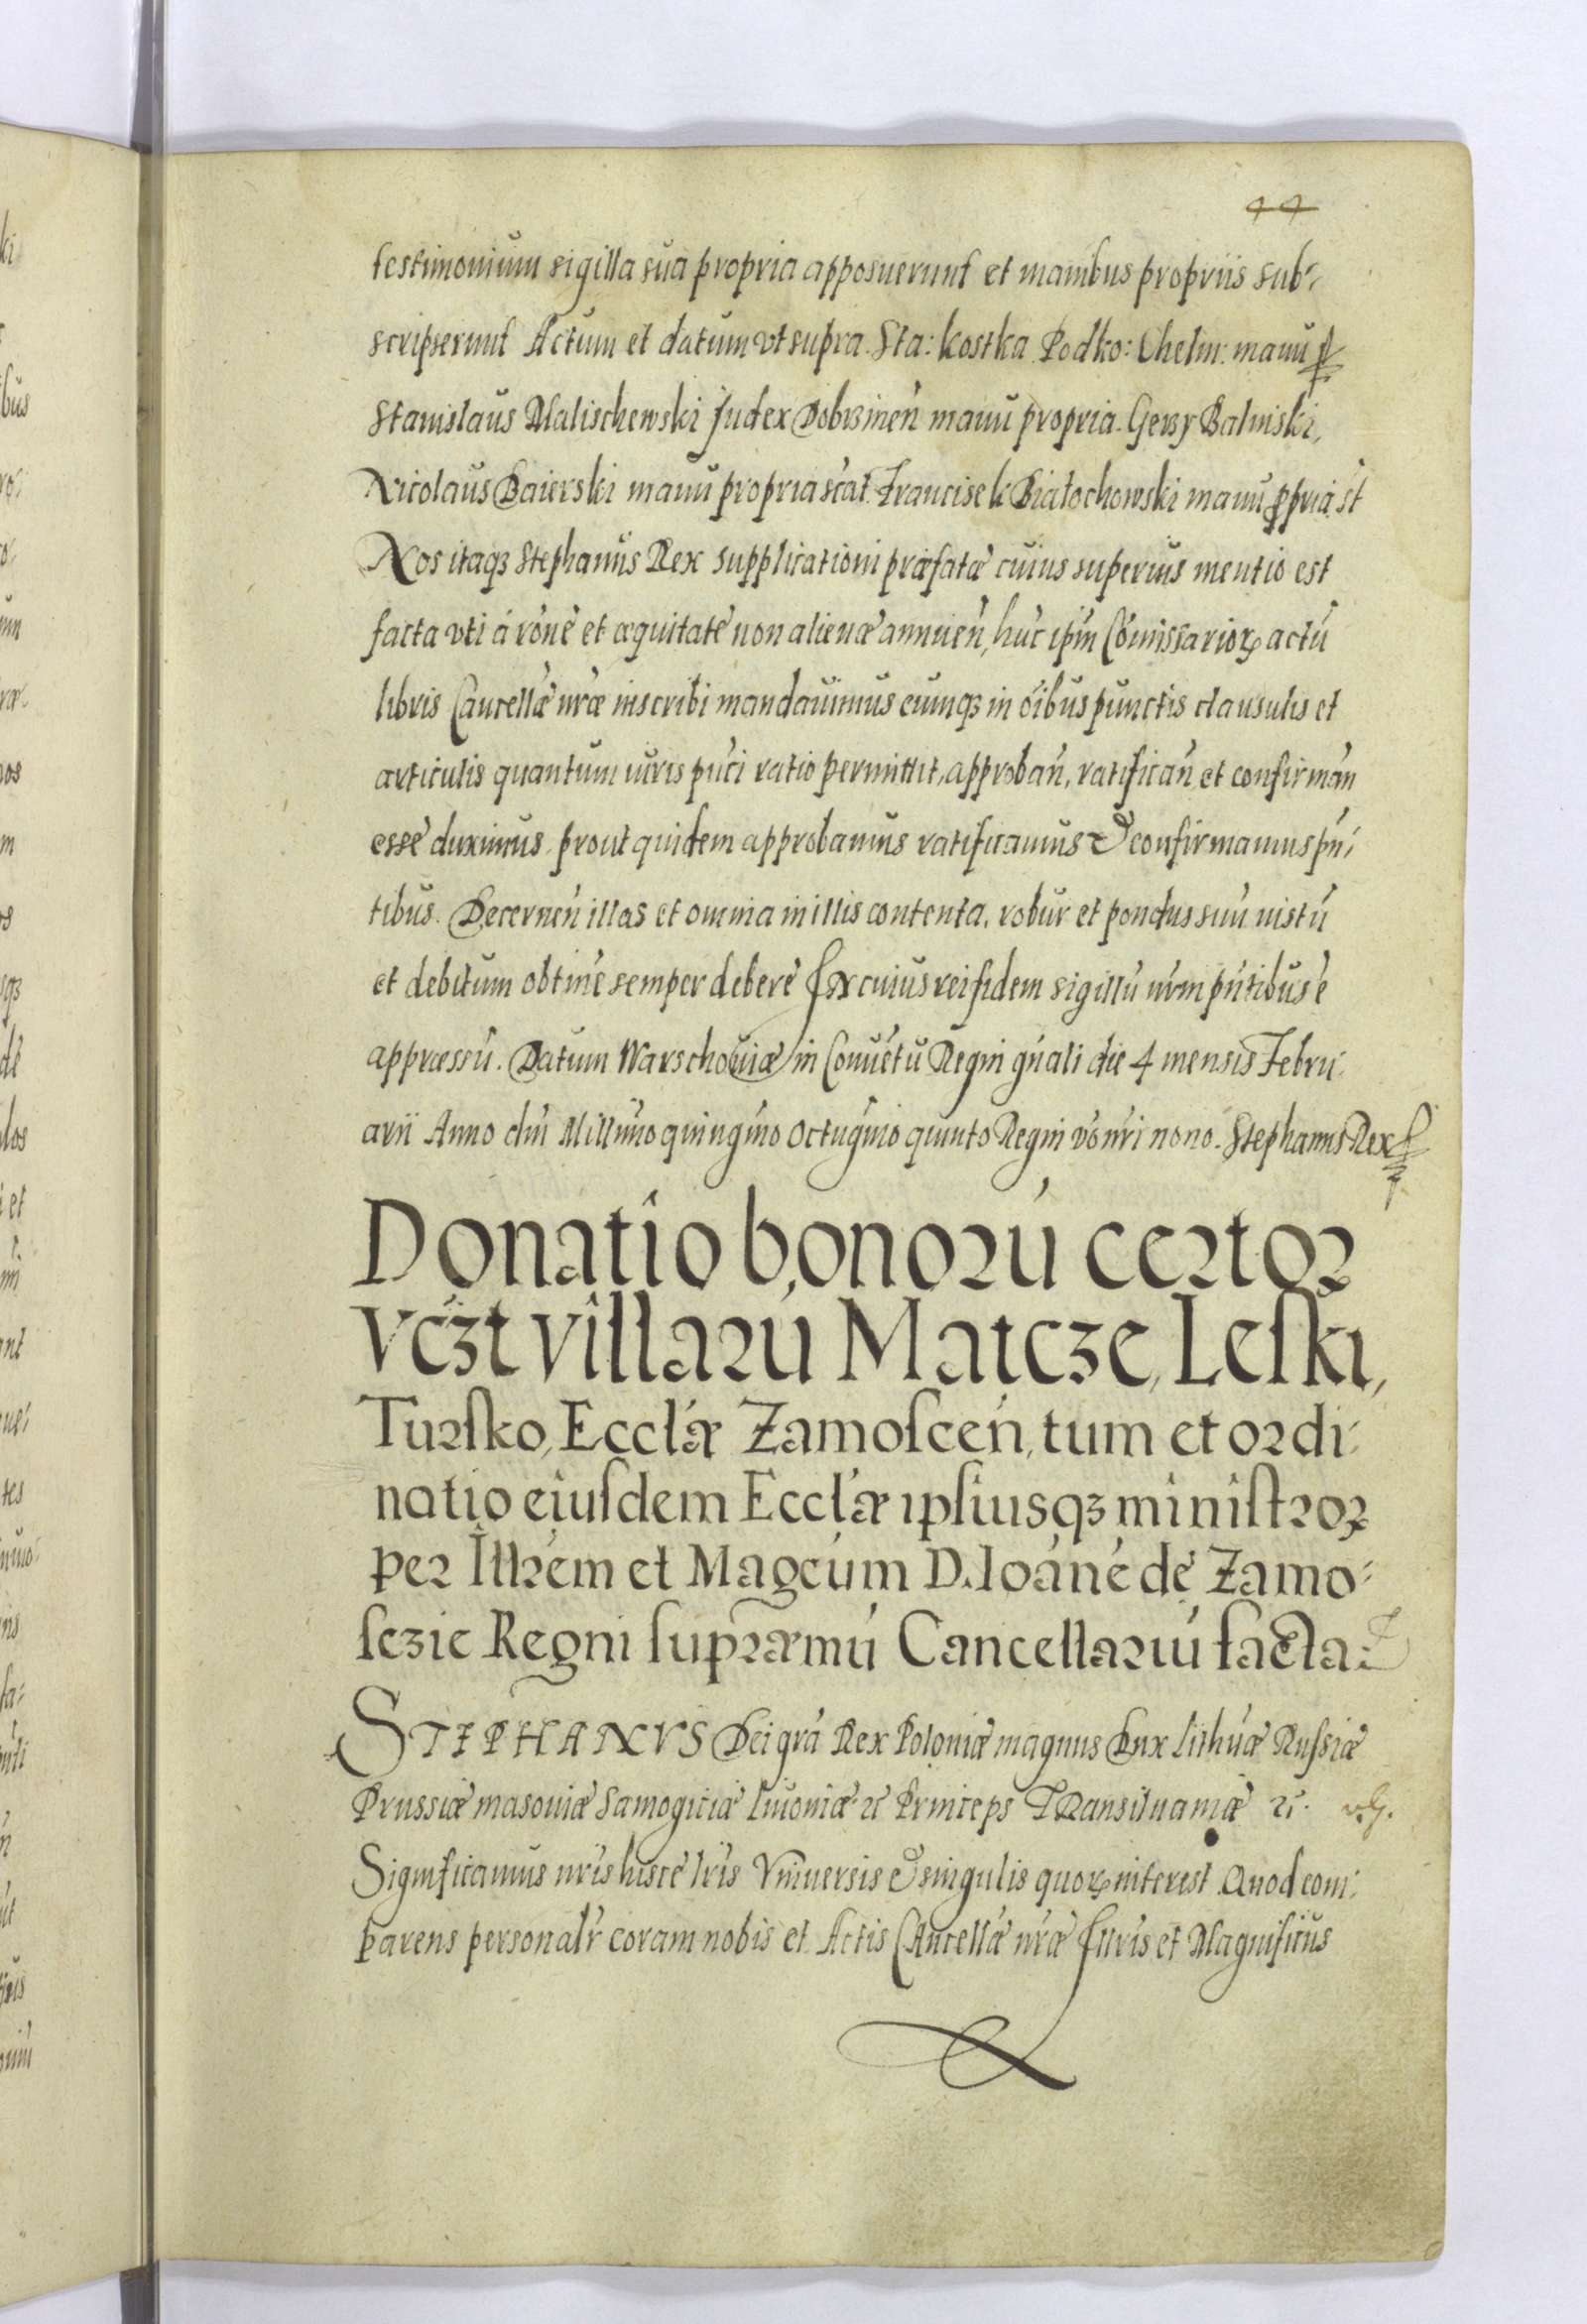 44
testimonium sigilla sua propria apposuerunt et manibus propriis sub-
scripserunt Actum et datum vt supra. Sta: kostka Podko: Chelm: manu p
Stanislaus Malischewski Judex Dobrzinen̄ manu propria. Gerzy Balinski,
Nicolaus Baierski manu propria sc̄at. Francisek Białochowski manu ꝓpria st
Nos itaqꝫ Stephanus Rex supplicationi præfatæ cuius superius mentio est
facta vti á rōne et æquitate non alienæ annuen̄, huc ip̄m Com̄issarioꝝ actū
libris Cancellæ nr̄æ inscribi mandauimus eumqꝫ in ōibus punctis clausulis et
articulis quantum iuris pu᷃ci ratio permittit, approban̄, ratifican̄ et confirman̄
esse duximus prout quidem approbamus ratificamus & confirmamus pn̄-
tibus. Decernen̄ illas et omnia in illis contenta, robur et pondus suū iustū
et debitum obtine semper debere In cuius rei fidem sigillū nr̄m pn̄tibus ē
appræssū. Datum Warschouiæ in Conuētu Regni gn̄ali die 4 mensis Febru-
arii Anno dn̄i Millimo quingmo Octugmo quinto Regni vo nr̄i nono. Stephanus Rex
Donatio bonorū certor
Vcꝫt villarū Matcze, Leſki,
Turſko, Eccl̄æ Zamoſcen̄, tum et ordi-
natio eiuſdem Eccl̄æ ipſiusqꝫ miniſtroꝝ
per Illrem et Magcūm D. Ioānē de Zamo-
ſczie Regni ſupræmū Cancellariū facta:
STEPHANVS Dei grā Rex Poloniæ magnus Dux Lithuæ Russiæ
Prussiæ masouiæ Samogitiæ Liuoniæ ꝛc Princeps TRansiluaniæ ꝛc.
Significamus nr̄is hisce lr̄is Vniuersis & singulis quoꝝ interest Quod com-
parens personalr̄ coram nobis et Actis CAncellæ nr̄æ Illris et Magnificus